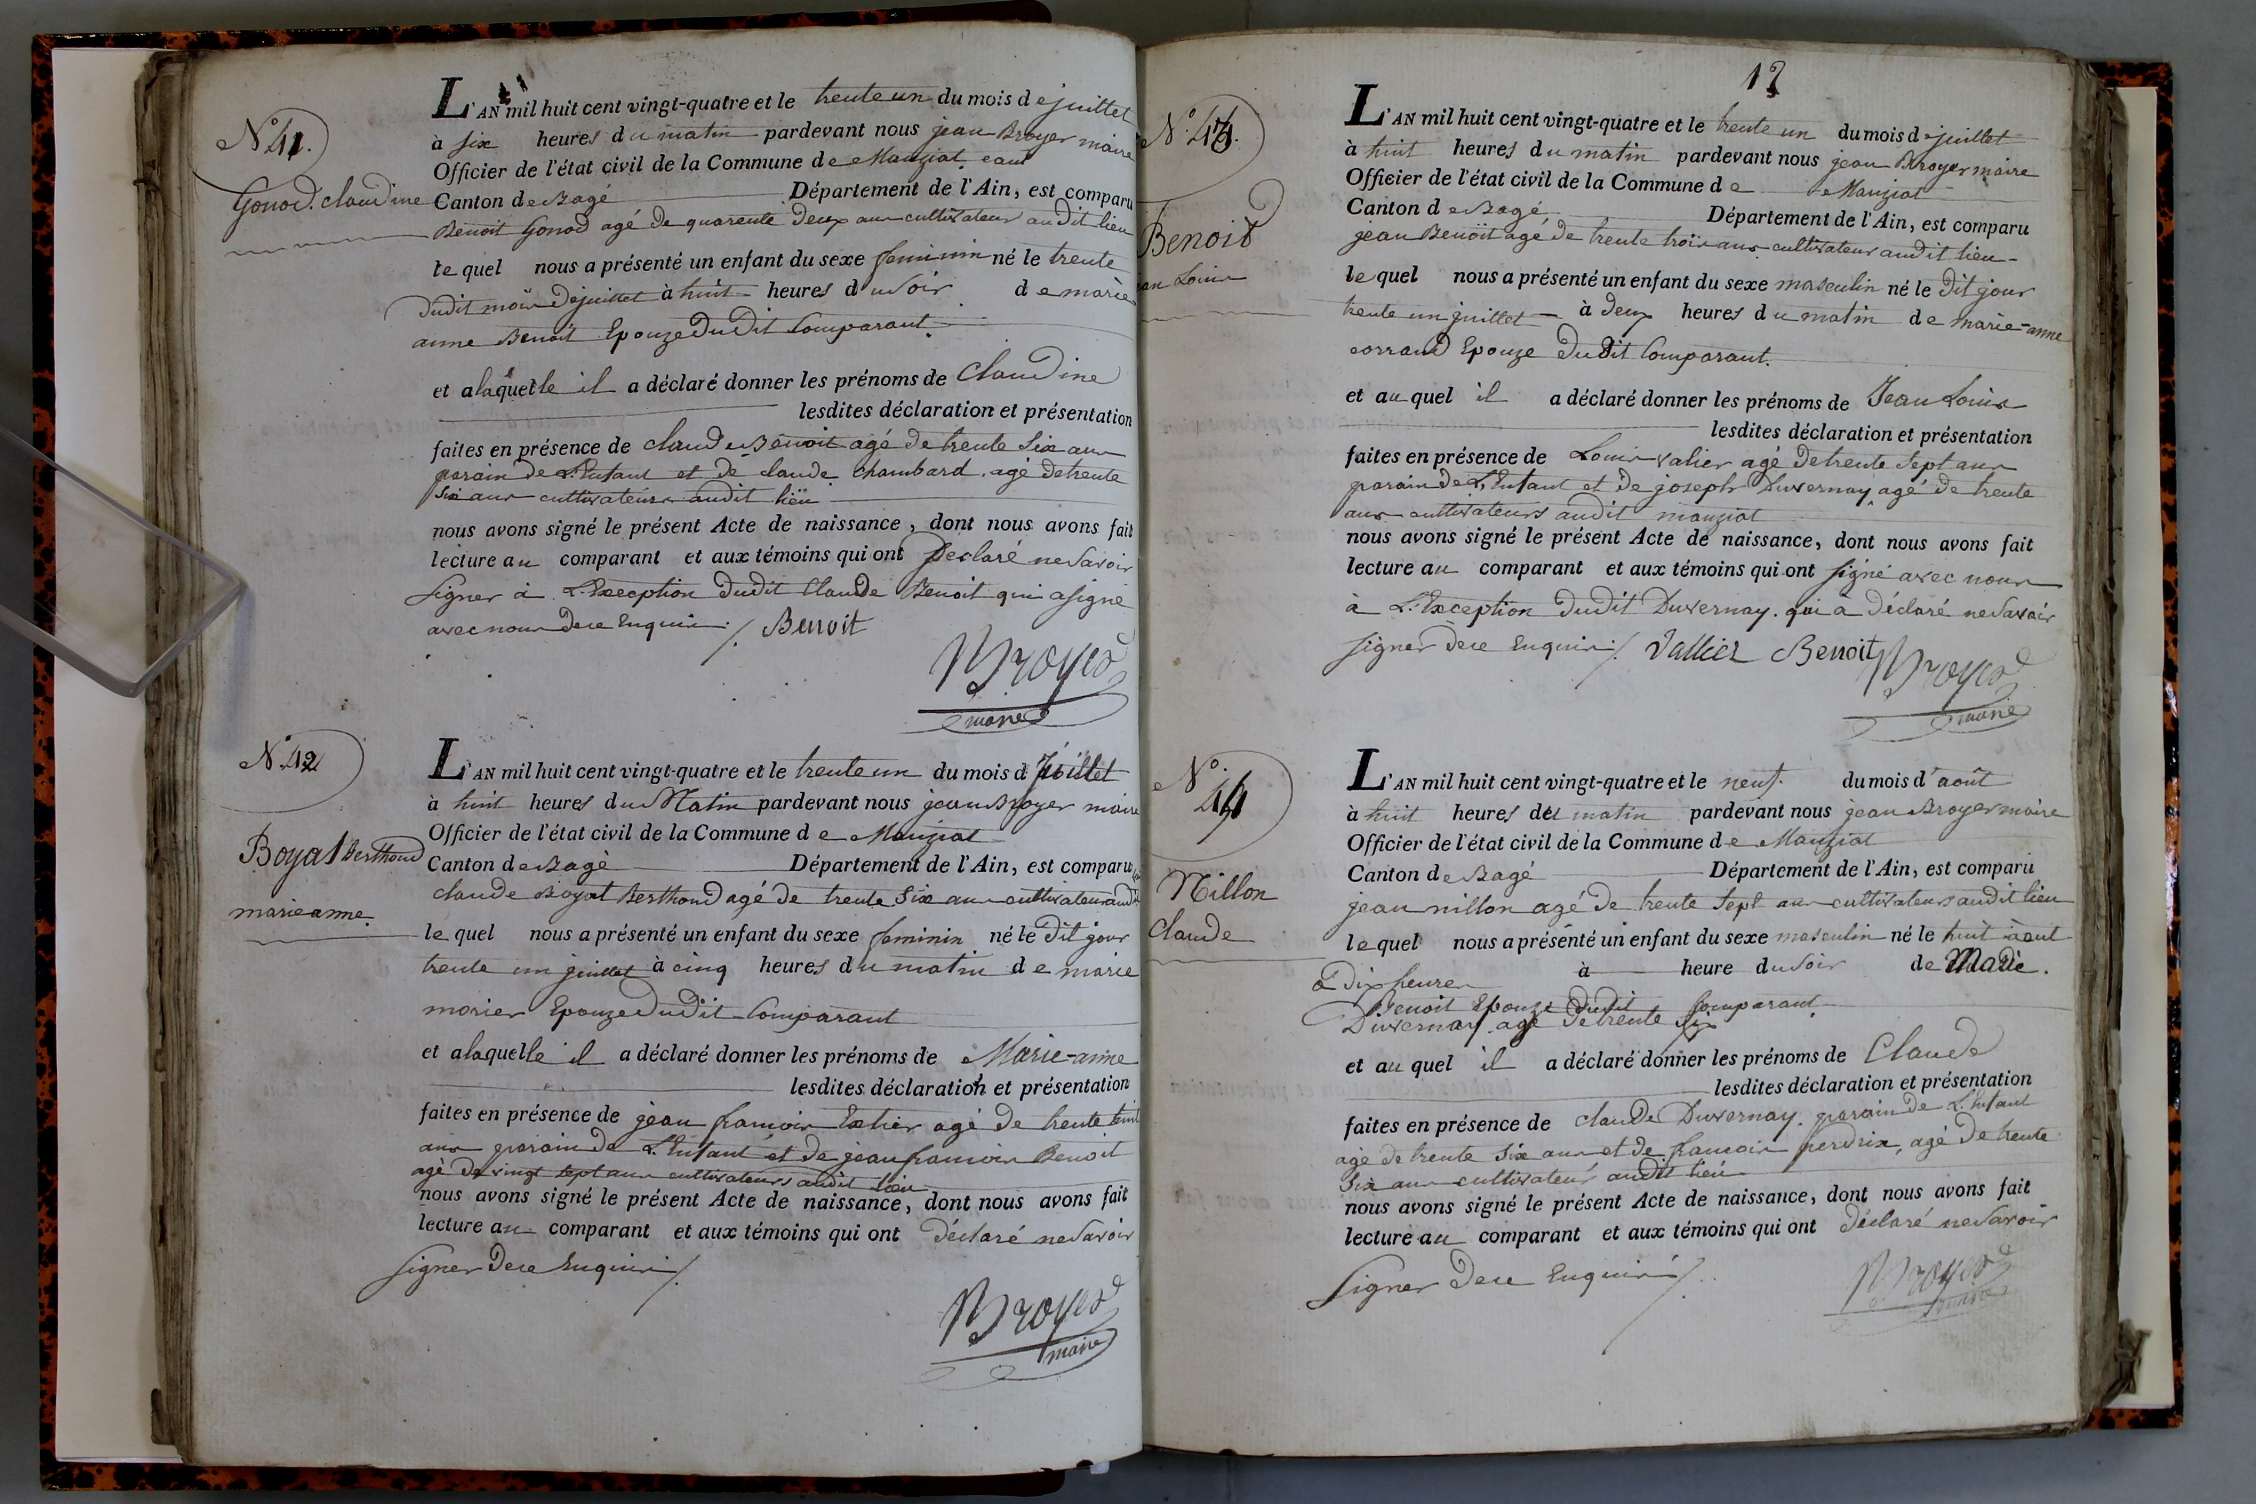 N.° 41.
Gonod. claudine
L'AN mil huit cent vingt-quatre et le trente un du mois de juillet
à six heures du matin pardevant nous jean Broyer maire
Officier de l'état civil de la Commune de Manziat
Canton de Bagé Département de l'Ain, est comparu
Benoit Gonod agé de quarente deux ans cultivateur audit lieu
lequel nous a présenté un enfant du sexe feminin né le trente
dudit mois de juillet à huit heures du soir de marie
anne Benoit Epouze du dit Comparant.
et a laquelle il a déclaré donner les prénoms de Claudine
lesdites déclaration et présentation
faites en présence de claude Benoit agé de trente six ans
parain de L'Enfant et de claude chambard. agé de trente
six ans cultivateurs audit lieu
nous avons signé le présent Acte de naissance, dont nous avons fait
lecture au comparant et aux témoins qui ont declaré ne savoir
signer à L'Exception dudit Claude Benoit qui a signé
avec nous de ce Enquis ./. Benoit
Broyer
maire
N.° 42
Boyat Berthoud
marie anne
L'AN mil huit cent vingt-quatre et le trente un du mois d Juillet
à huit heures du Matin pardevant nous jean Broyer maire
Officier de l'état civil de la Commune de Manziat
Canton de Bagé Département de l'Ain, est comparu
claude Boyat Berthoud agé de trente six ans cultivateur audit
lequel nous a présenté un enfant du sexe feminin né le dit jour
trente un juillet à cinq heures du matin de marie
morier Epouze du dit Comparant
et a laquelle il a déclaré donner les prénoms de Marie-anne
lesdites déclaration et présentation
faites en présence de jean francois agé de trente huit
ans parain de L'Enfant et de jean francois Benoit
agé de vingt sept ans cultivateurs audit lieu
nous avons signé le présent Acte de naissance, dont nous avons fait
lecture au comparant et aux témoins qui ont déclaré ne savoir
signer de ce Enquis ./.
Broyer
maire
12
N.° 43.
Benoit
jean Louis
L'AN mil huit cent vingt-quatre et le trente un du mois de juillet
à huit heures du matin pardevant nous jean Broyer maire
Officier de l'état civil de la Commune de Manziat
Canton de Bagé Département de l'Ain, est comparu
jean Benoit agé de trente trois ans cultivateur audit lieu
lequel nous a présenté un enfant du sexe masculin né le dit jour
trente un juillet à deux heures du matin de marie-anne
corrand Epouze du dit Comparant.
et au quel il a déclaré donner les prénoms de Jean Louis
lesdites déclaration et présentation
faites en présence de Louis valier agé de trente sept ans
parain de L'Enfant et de joseph Duvernay agé de trente
ans cultivateurs audit manziat
nous avons signé le présent Acte de naissance, dont nous avons fait
lecture au comparant et aux témoins qui ont signé avec nous
à L'Exception dudit Duvernay. qui a déclaré ne savoir
signer de ce Enquis ./. Vallier Benoit
Broyer
maire
N.° 44
Nillon
claude
L'AN mil huit cent vingt-quatre et le neuf. du mois d'août
à huit heures du matin pardevant nous jean Broyer maire
Officier de l'état civil de la Commune de Manziat
Canton de Bagé Département de l'Ain, est comparu
jean nillon agé de trente sept ans cultivateur audit lieu
lequel nous a présenté un enfant du sexe masculin né le huit août
à dix heures à heure du soir de Marie.
Benoit Epouze dudit Comparant
Duvernay agé de trente six
et au quel il a déclaré donner les prénoms de Claude
lesdites déclaration et présentation
faites en présence de claude Duvernay. parain de L'Enfant
agé de trente six ans et de francois perdrix, agé de trente
six ans cultivateur audit lieu
nous avons signé le présent Acte de naissance, dont nous avons fait
lecture au comparant et aux témoins qui ont déclaré ne savoir
signer de ce Enquis ./.
Broyer
maire